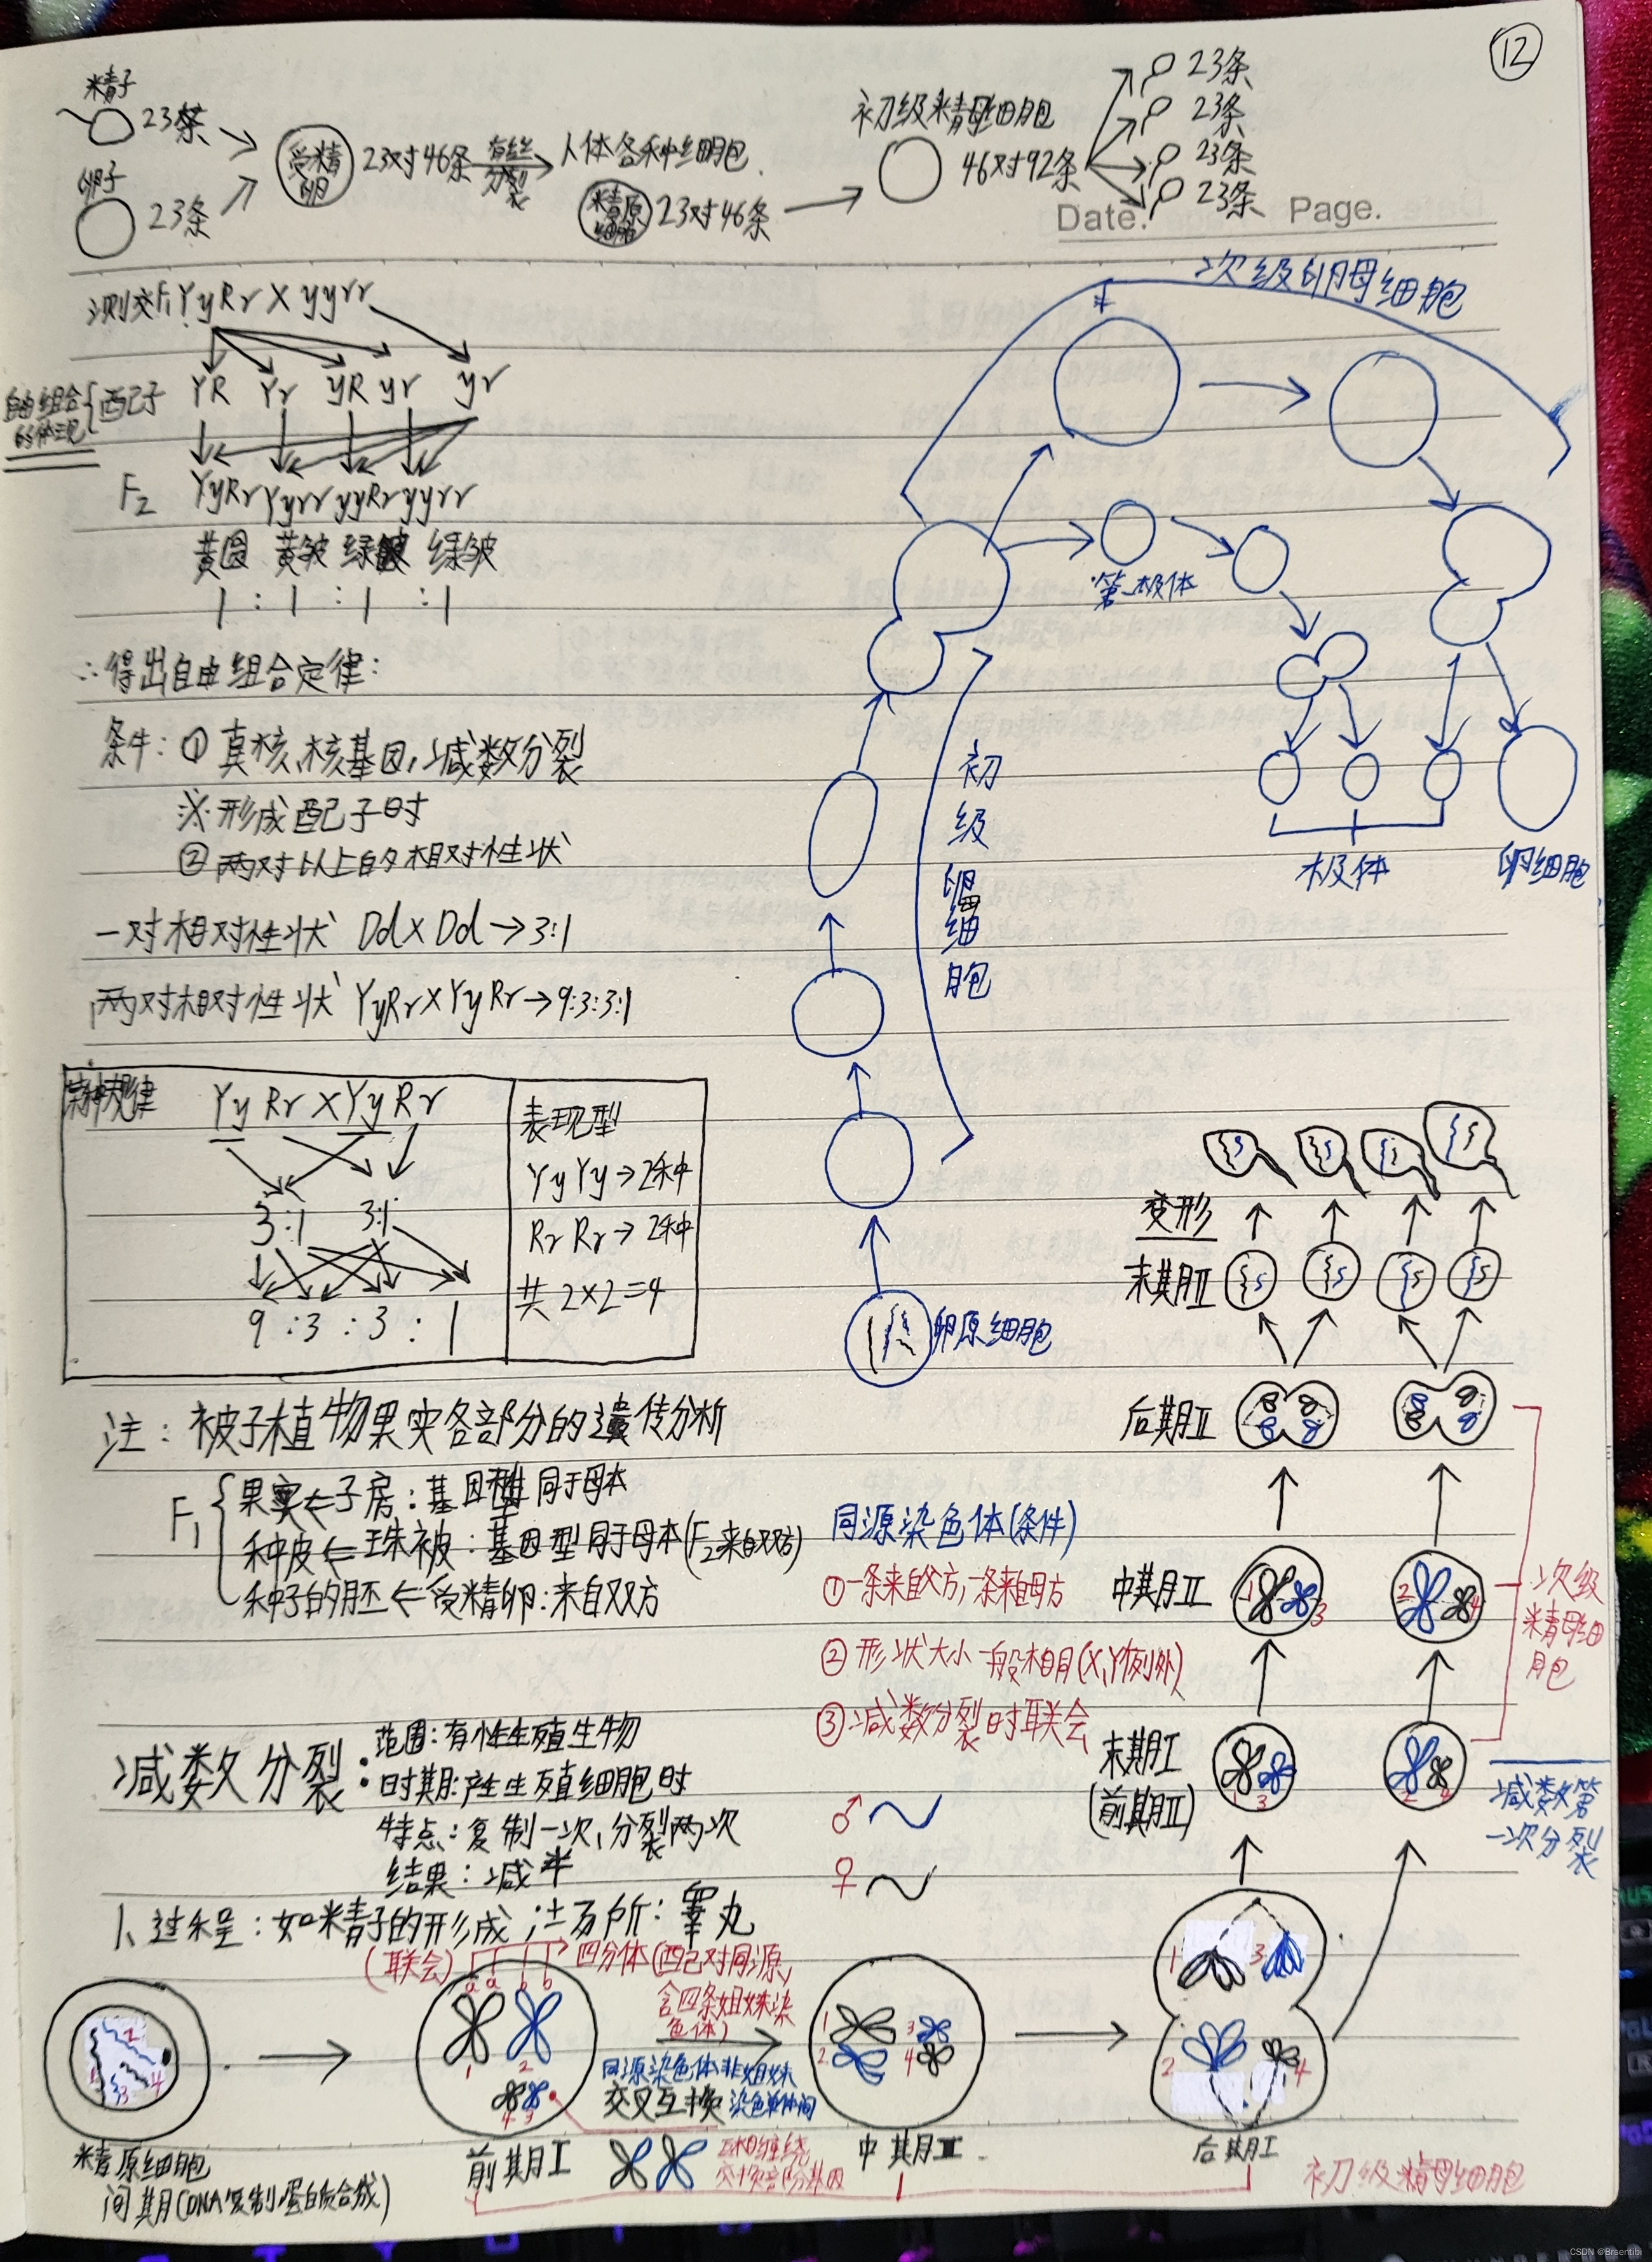 12
精子
23条
卵子
23条
受精卵
23对46条
有丝分裂
人体各种细胞
精原细胞
23对46条
初级精母细胞
46对92条
23条
23条
23条
23条
Date.
Page.
测交F₁YyRr×yyrr
自由组合的体现
配子
YR Yr yR yr yr
F₂ YyRr Yyrr yyRr yyrr
黄圆 黄皱 绿 绿皱
1 : 1 : 1 : 1
∴得出自由组合定律:
条件: ① 真核,核基因,减数分裂
※形成配子时
② 两对以上的相对性状
一对相对性状 Dd×Dd→3:1
两对相对性状 YyRr×YyRr→9:3:3:1
规律
YyRr×YyRr
3:1 3:1
9 :3 :3 : 1
表现型
YyYy→2种
RrRr→2种
共2×2=4
注: 被子植物果实各部分的遗传分析
F₁
果实⇐子房:基因型同于母本
种皮⇐珠被:基因型同于母本(F₂来自双方)
种子的胚⇐受精卵:来自双方
减数分裂:
范围:有性生殖生物
时期:产生生殖细胞时
特点:复制一次,分裂两次
结果:减半
1、过程:如精子的形成 ;场所:睾丸
次级卵母细胞
第一极体
初级卵母细胞
极体
卵细胞
卵原细胞
同源染色体(条件)
①一条来自父方,一条来自母方
②形状大小一般相同(X,Y例外)
③减数分裂时联会
♂
♀
变形
末期Ⅱ
后期Ⅱ
中期Ⅱ
1 3
2 4
次级精母细胞
末期Ⅰ
(前期Ⅱ)
1 3
2 4
减数第一次分裂
(联会)
a a b b
四分体(配对同源,
含四条姐妹染
色体)
同源染色体非姐妹
交叉互换 染色单体间
交换部分基因
精原细胞
间期(DNA复制,蛋白质合成)
前期Ⅰ
中期Ⅱ
后期Ⅰ
初级精母细胞
CSDN @Brsentibi